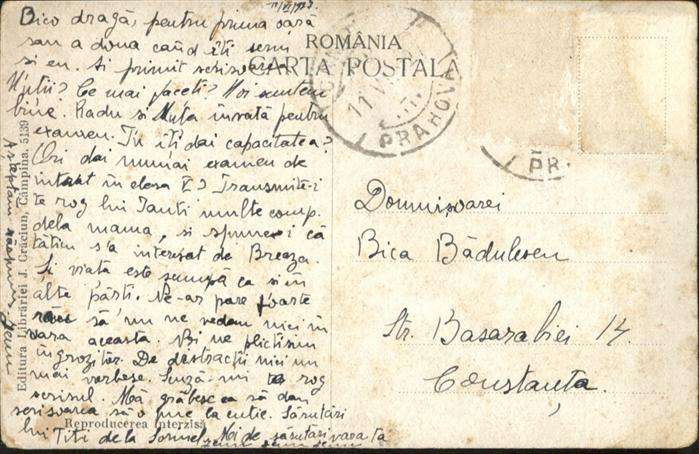 Bico dragă, pentru prima oară
sau a doua când îți scriu
și eu. Ai primit scrisoarea
Cuții? Ce mai faceți? Noi suntem
bine. Radu și Muța învață pentru
examen. Tu îți dai capacitatea?
Ori dai numai examen de
intrat în clasa V? Transmite-i
te rog lui Tanti multe comp.
dela mama, și spune-i că
tăticu s'a interesat de Breaza.
Și viața este scumpă ca și în
alte părți. Ne-ar pare foarte
rău să nu ne vedem nici în
vara aceasta. Voi ne plictisim
îngrozitor. De distracții nici nu
mai vorbesc. Scuză-mi te rog
scrisul. Mă grăbesc ca să dau
scrisoarea să o pue la cutie. Sărutări
lui Titi de la Sormel. Noi de sărutări vara ta
Așteptăm răspuns
Editura Librăriei J. Crăciun, Câmpina. 5139
Reproducerea interzisă
ROMÂNIA
CARTA POSTALĂ
11 V
PRAHOVA
PR
Domnișoarei
Bica Bădulescu
Str. Basarabiei 14
Constanța.